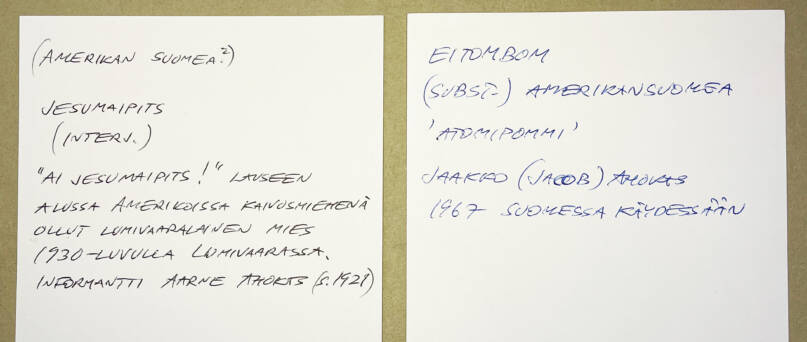 (AMERIKAN SUOMEA?)
JESUMAIPITS
(INTERJ.)
"AI JESUMAIPITS!" LAUSEEN
ALUSSA AMERIKOISSA KAIVOSMIEHENÄ
OLLUT LUMIVAARALAINEN MIES
1930-LUVULLA LUMIVAARASSA.
INFORMANTTI AARNE AHOKAS (S. 1921)
EITOMBOM
(SUBST.) AMERIKANSUOMEA
'ATOMIPOMMI'
JAAKKO (JACOB) AHOKAS
1967 SUOMESSA KÄYDESSÄÄN